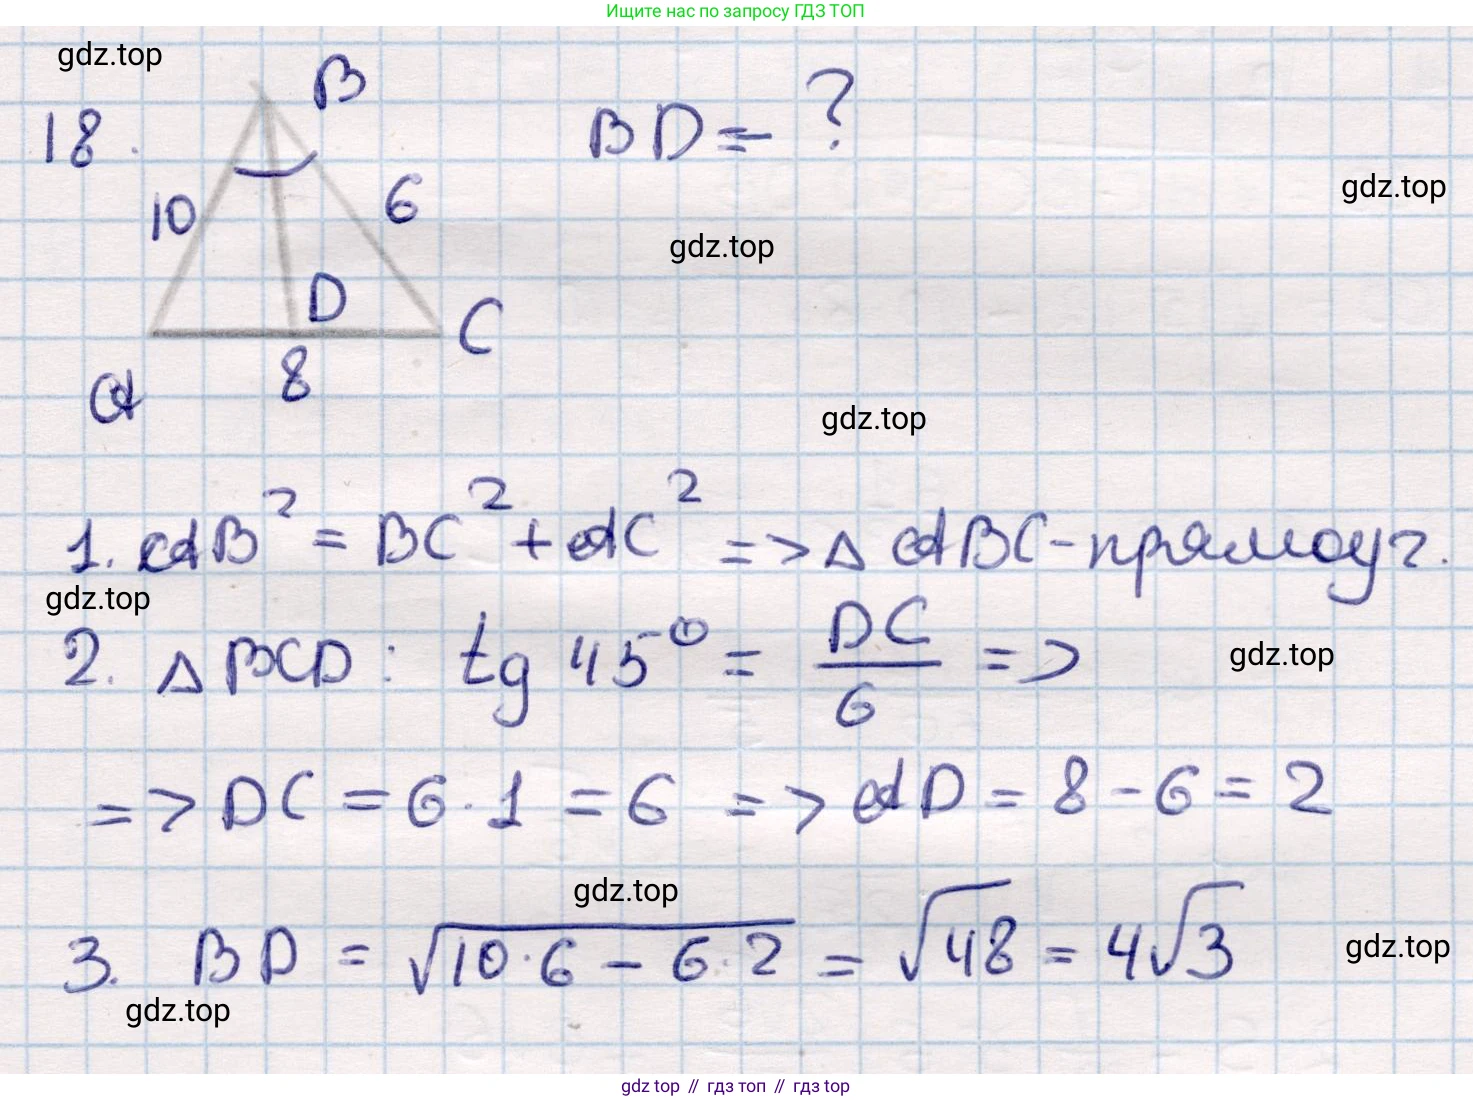 Ищите нас по запросу ГДЗ ТОП
gdz.top
18.
B
BD = ?
10
6
gdz.top
gdz.top
D
C
A
8
gdz.top
1. AB² = BC² + AC² => △ ABC - прямоуг.
gdz.top
2. △ BCD : tg 45° = DC/6 =>
gdz.top
=> DC = 6 · 1 = 6 => AD = 8 - 6 = 2
gdz.top
3. BD = √10·6 - 6·2 = √48 = 4√3
gdz.top
gdz.top
gdz top // гдз топ // гдз top